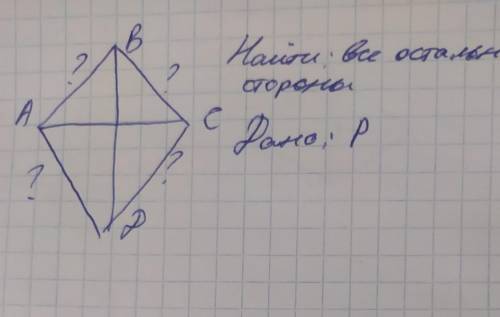 B
? ?
Найти: все остальн
стороны
A C
Дано: P
? ?
D